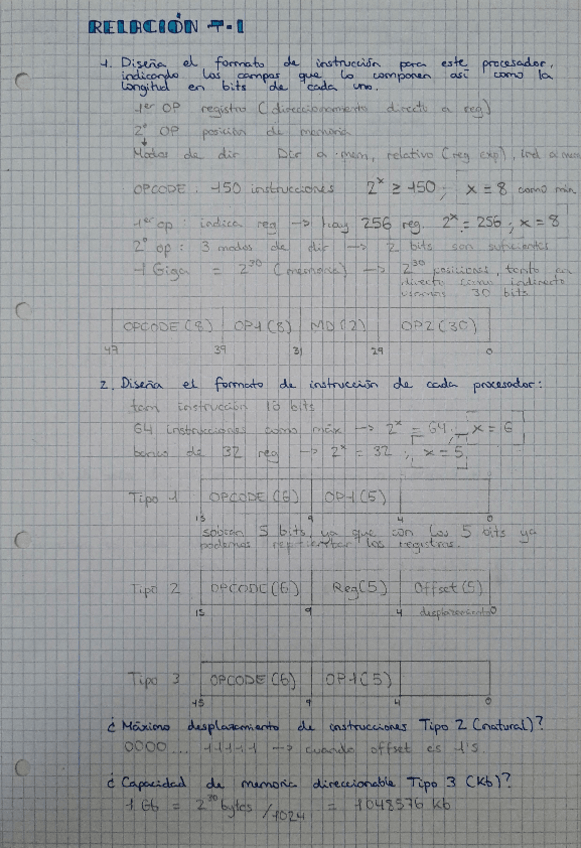 RELACIÓN T-1
1. Diseña el formato de instrucción para este procesador,
indicando los campos que lo componen así como la
longitud en bits de cada uno.
1er OP registro (direccionamiento directo a reg)
2º OP posición de memoria
Modos de dir Dir a mem, relativo (reg exp), ind a mem
OPCODE: 150 instrucciones 2^x ≥ 150; x = 8 como min
1er op: indica reg → hay 256 reg. 2^x = 256; x = 8
2º op: 3 modos de dir → 2 bits son suficientes
1 Giga = 2^30 (memoria) → 2^30 posiciones, tanto en
directo como indirecto
30 bits
OPCODE (8) OP1 (8) MD (2) OP2 (30)
47 39 31 29 0
2. Diseña el formato de instrucción de cada procesador:
tam instrucción 16 bits
64 instrucciones como máx → 2^x = 64; x = 6
banco de 32 reg → 2^x = 32; x = 5
Tipo 1 OPCODE (6) OP1 (5)
15 9 4 0
sobran 5 bits, ya que con los 5 bits ya
podemos representar los registros.
Tipo 2 OPCODE (6) Reg (5) Offset (5)
15 9 4 desplazamiento 0
Tipo 3 OPCODE (6) OP1 (5)
15 9 4 0
¿Máximo desplazamiento de instrucciones Tipo 2 (natural)?
0000... 11111 → cuando offset es 1's.
¿Capacidad de memoria direccionable Tipo 3 (Kb)?
1 Gb = 2^30 bytes /1024 = 1048576 Kb